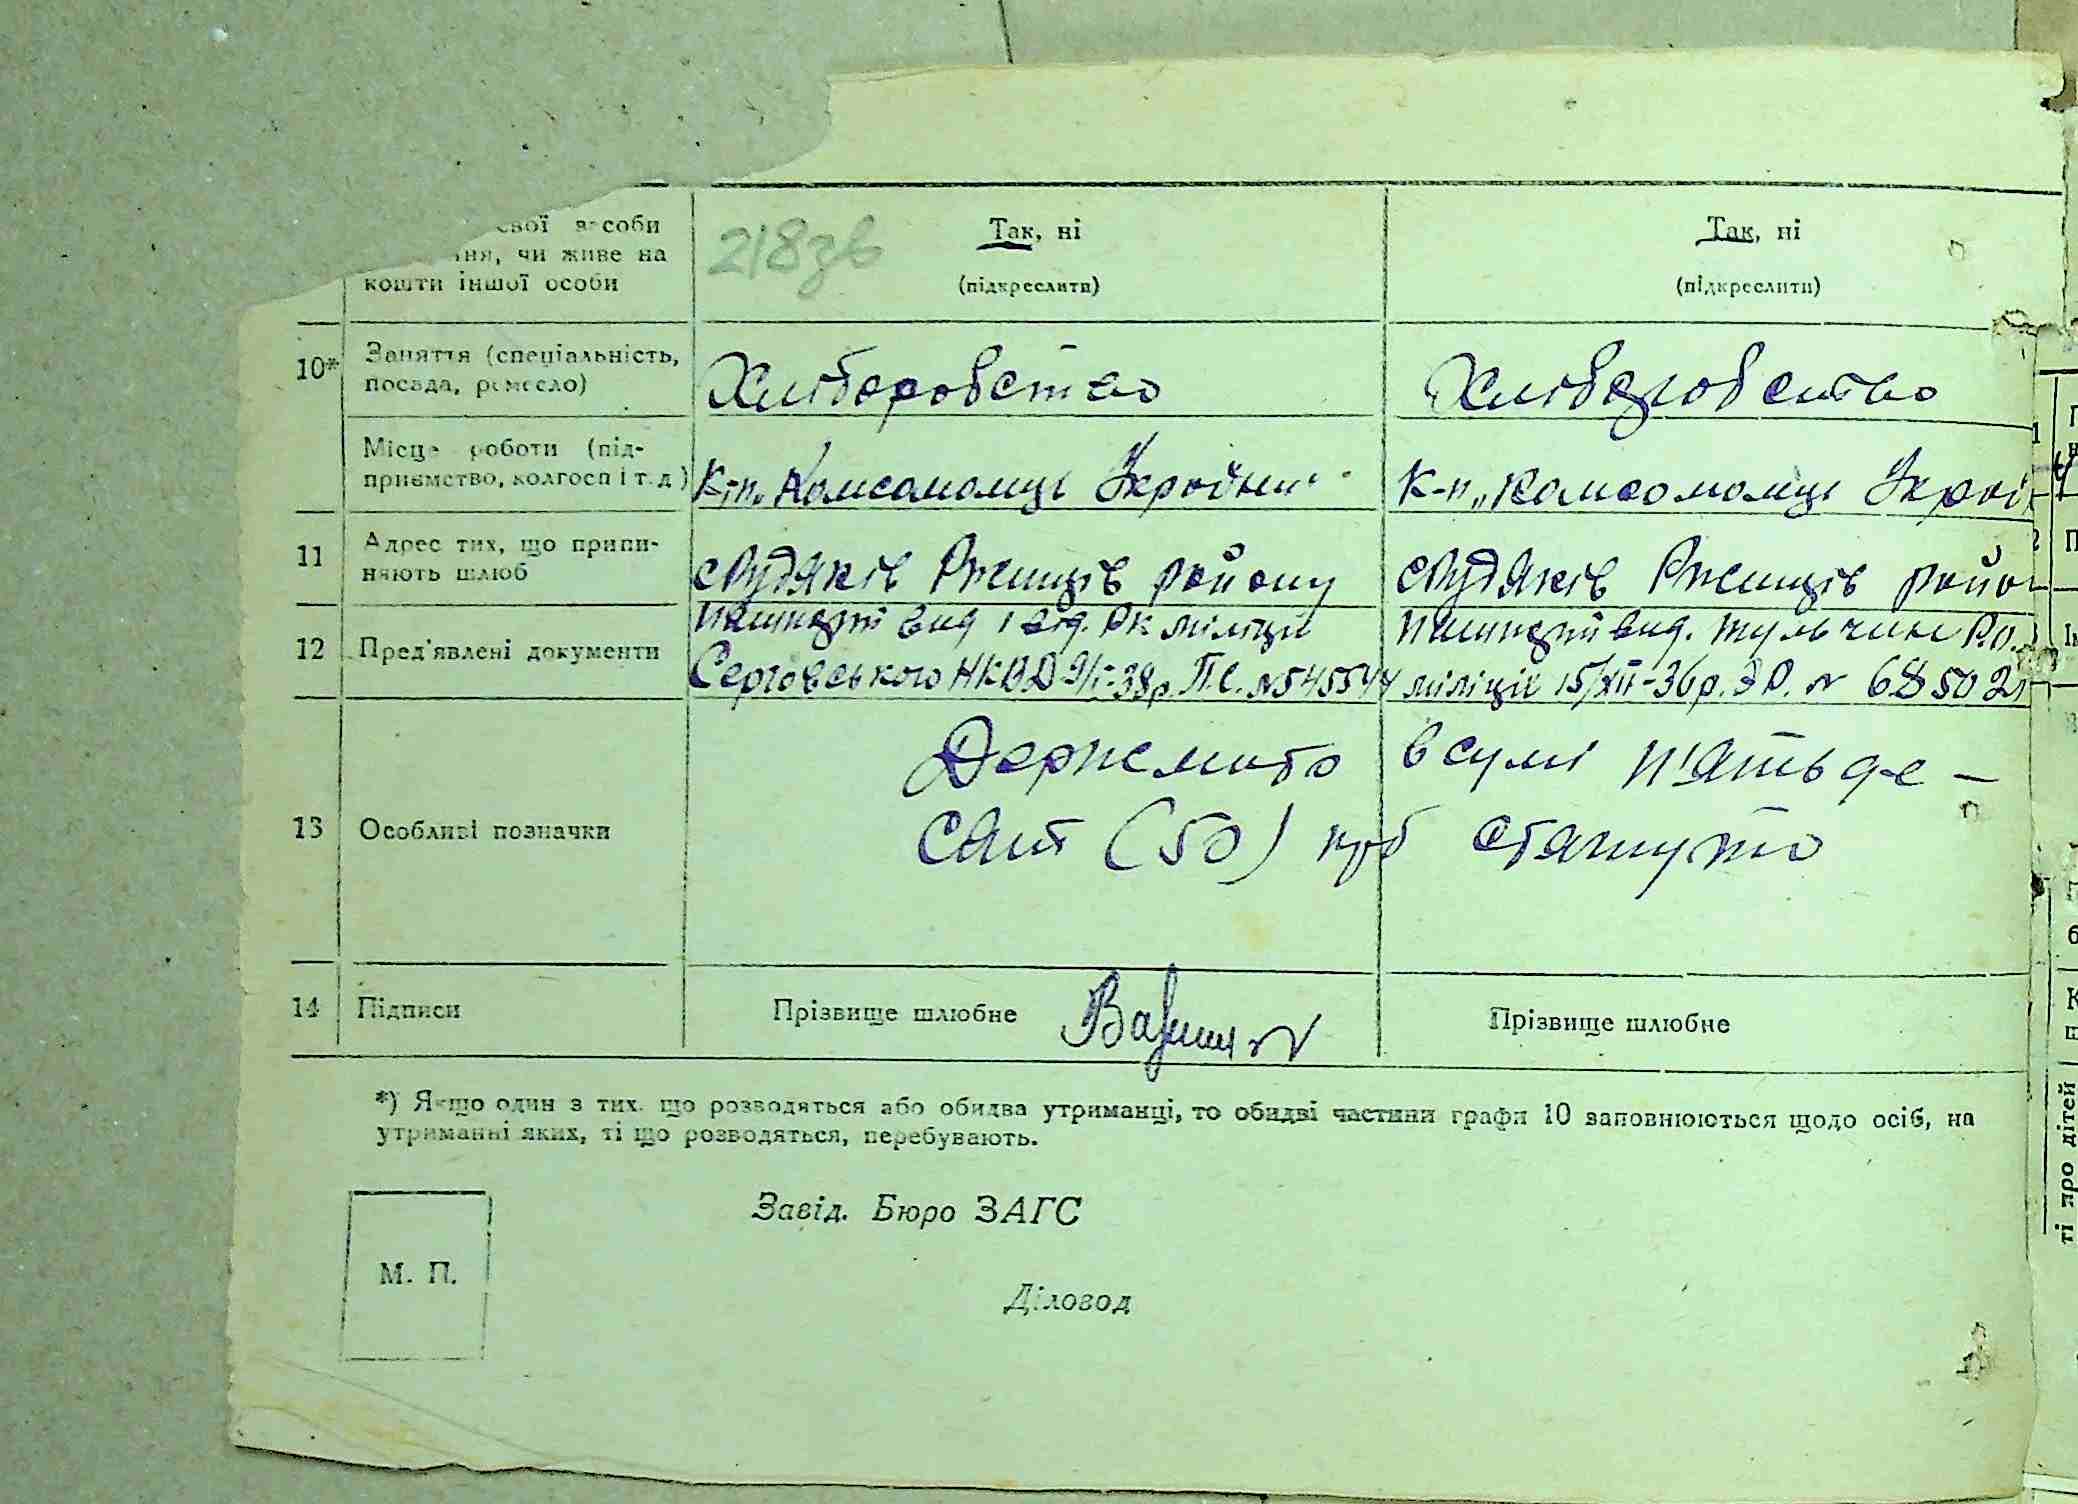 218зв
свої засоби Так, ні Так, ні
ння, чи живе на
кошти іншої особи (підкреслити) (підкреслити)
10* Заняття (спеціальність, посада, ремесло) Хліборобство Хліборобство
Місце роботи (підприємство, колгосп і т. д.) К-п „Комсомолець України" К-п „Комсомолець Украї
11 Адрес тих, що припиняють шлюб району райо
12 Пред'явлені документи Пашпорт вид 1 від. РК міліції Пашпорт вид. Тульчин Р.О.
НКВД 9/І-38р. П.С. №545544 міліціє 15/XII-36р. ЗР. № 685021
13 Особливі позначки Держмито в сумі п'ятьде-
сят (50) крб стягнуто
14 Підписи Прізвище шлюбне Прізвище шлюбне
*) Якщо один з тих, що розводяться або обидва утриманці, то обидві частини графи 10 заповнюються щодо осіб, на
утриманні яких, ті що розводяться, перебувають.
Завід. Бюро ЗАГС
М. П.
Діловод
ті про дітей